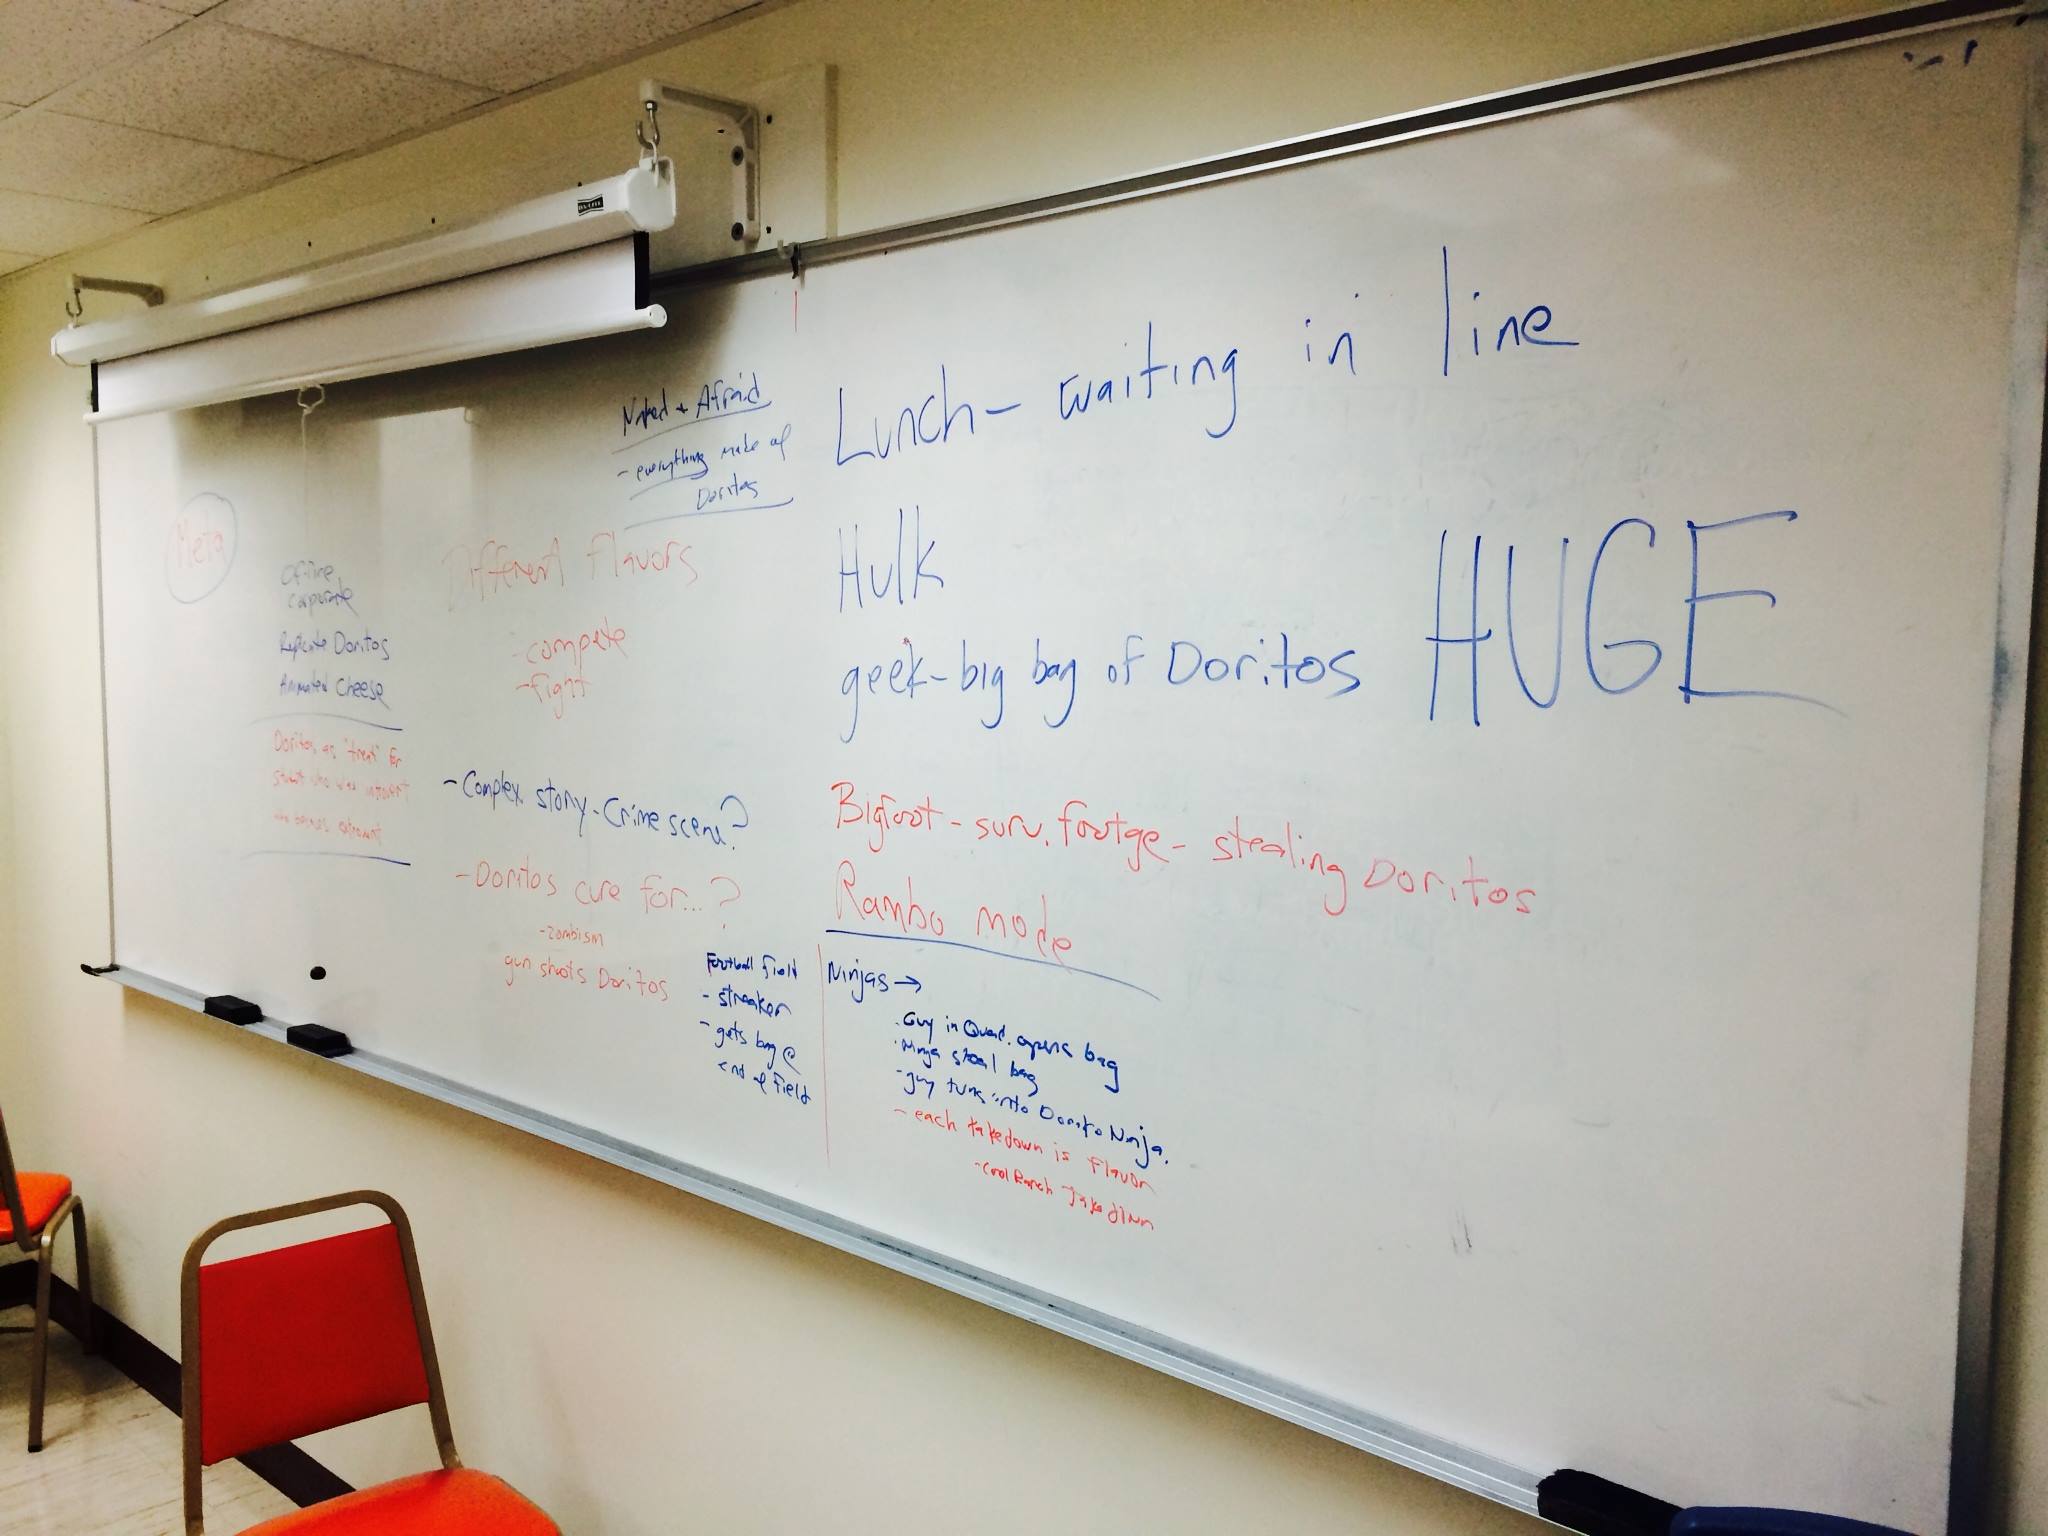 Meta
Offline
corporate
Replicate Doritos
Animated Cheese
Doritos as "treat" for
who was introvert
who becomes extrovert
Naked + Afraid
- everything made of
Doritos
Different Flavors
- compete
- fight
- Complex story - Crime scene?
- Doritos cure for...?
- zombism
gun shoots Doritos
Football Field
- streaker
- gets bag @
end of field
Lunch - waiting in line
Hulk
geek - big bag of Doritos HUGE
Bigfoot - surv. footge - stealing Doritos
Rambo mode
Ninjas →
. Guy in Quad. opens bag
. Ninja steal bag
- guy turns into Dorito Ninja.
- each takedown is flavor
- Cool Ranch Takedown